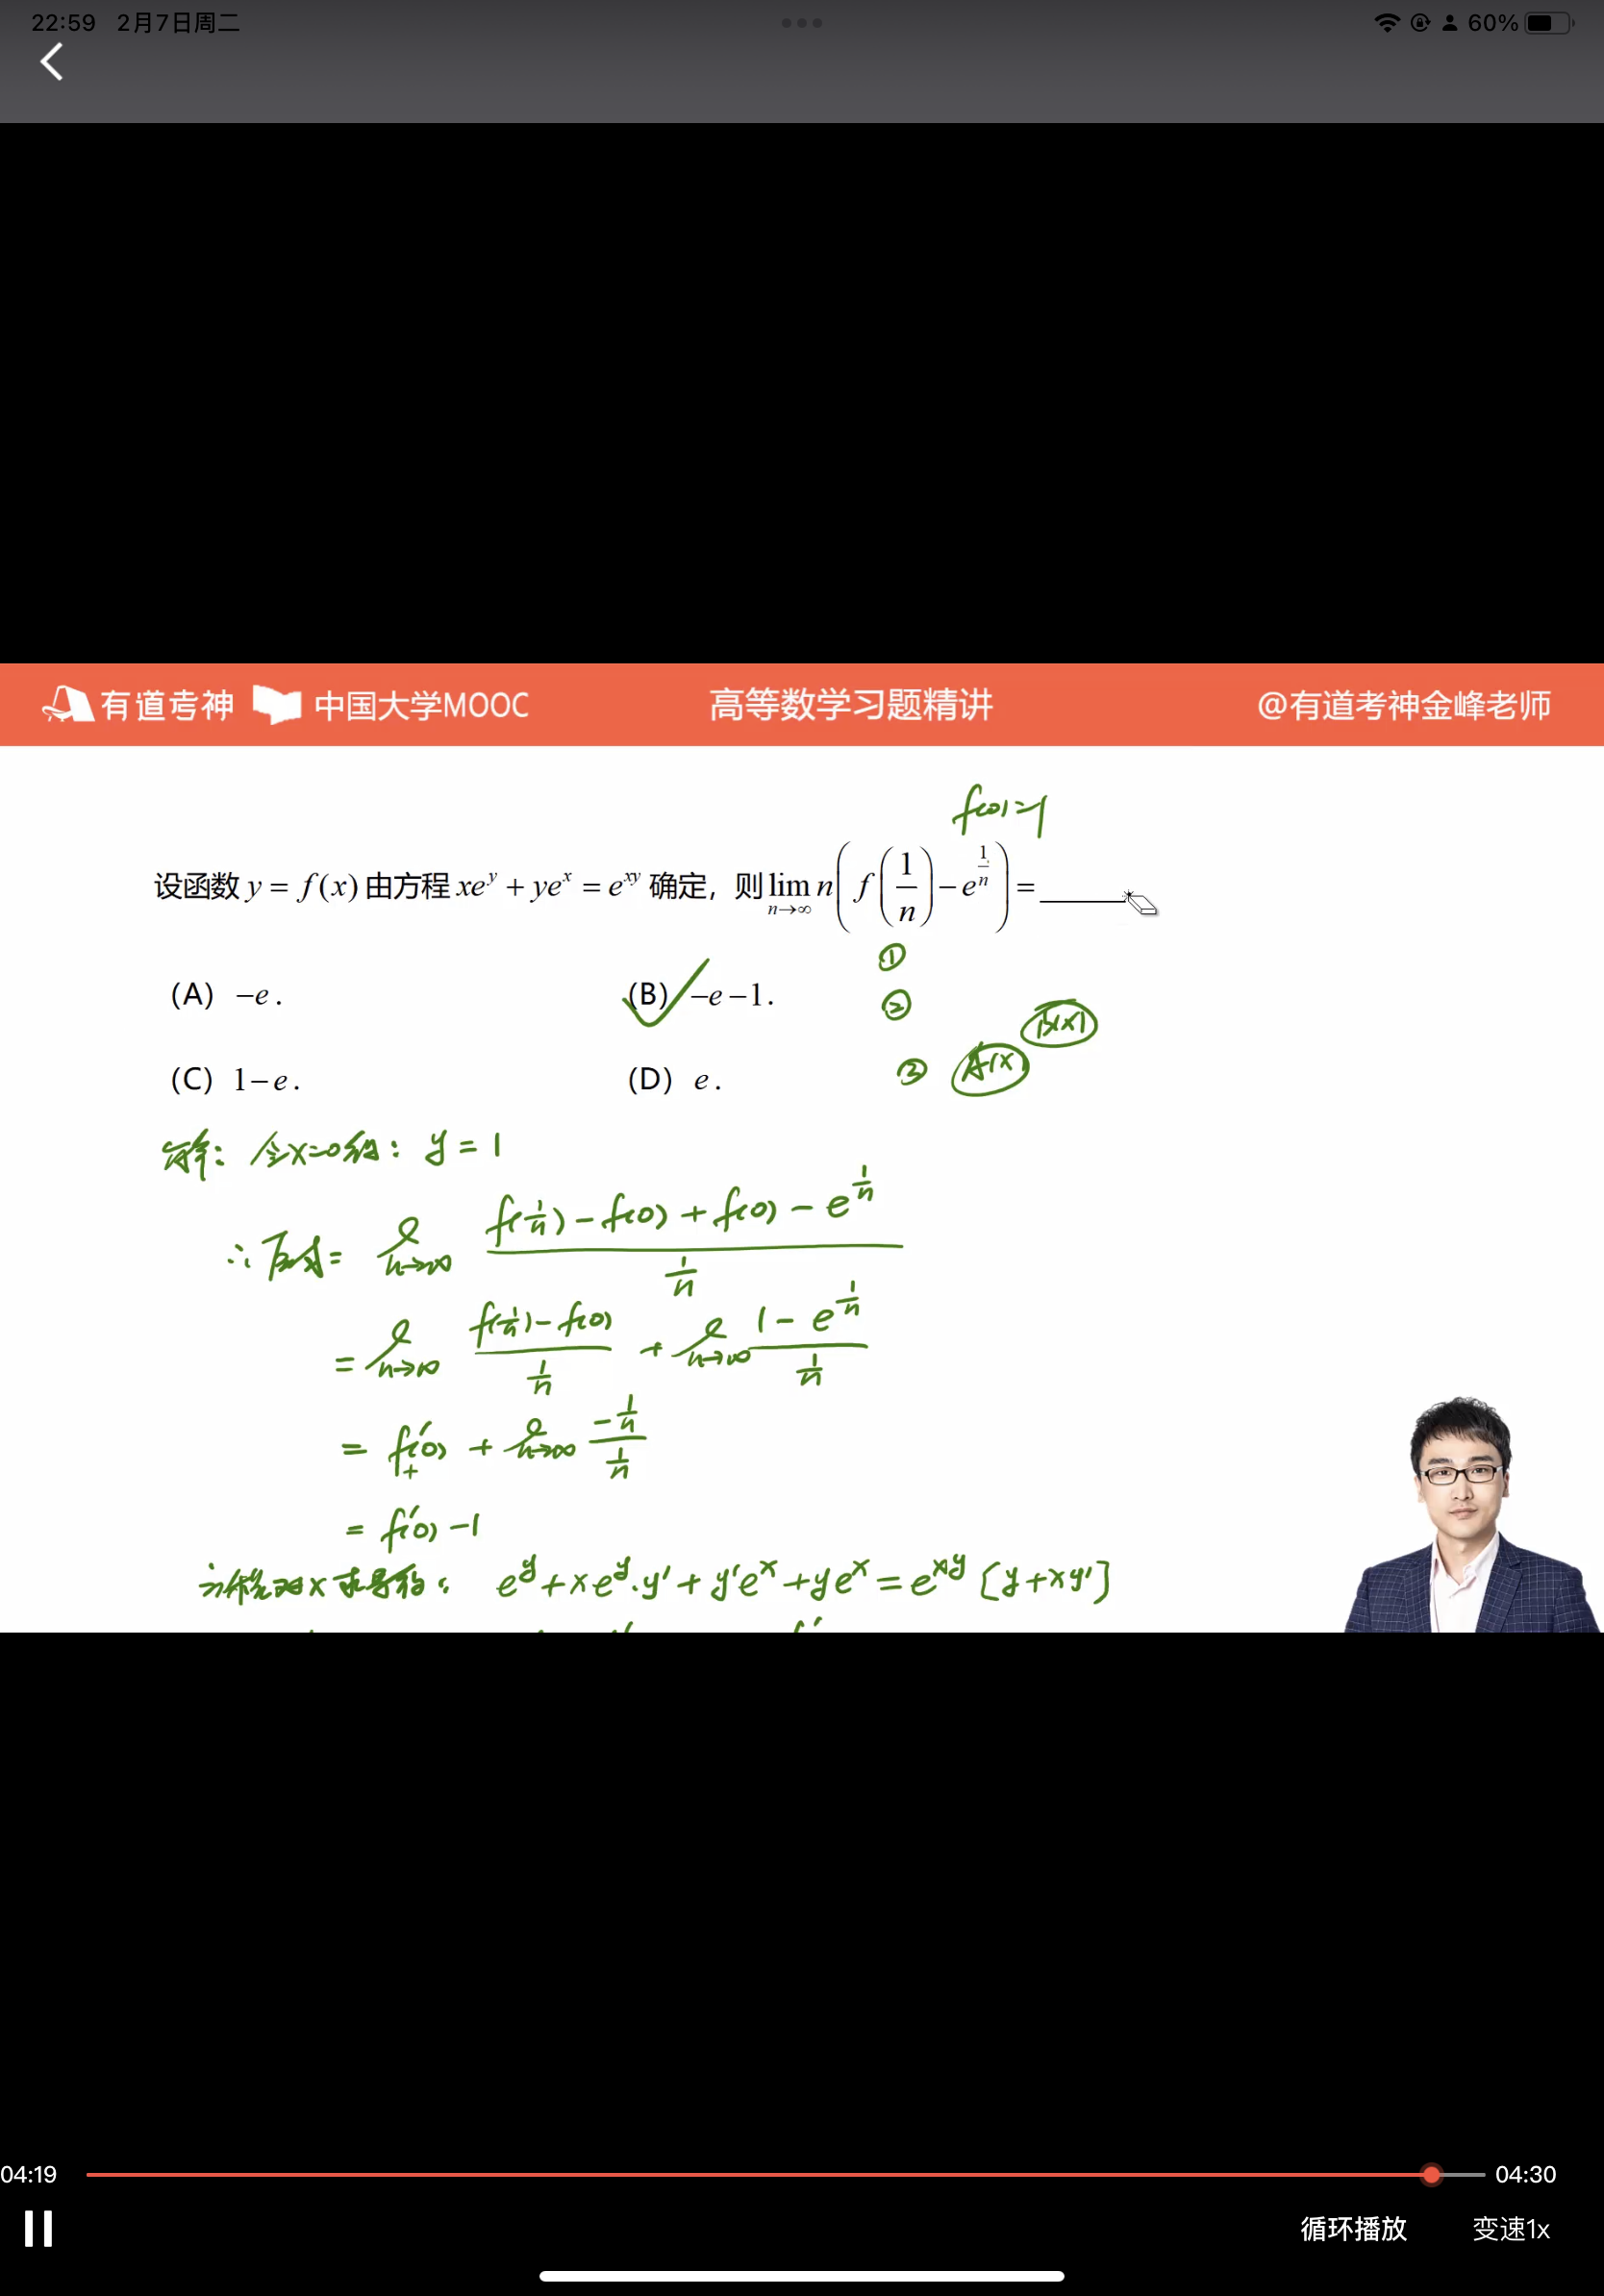 22:59 2月7日周二 60%
有道考神 中国大学MOOC 高等数学习题精讲 @有道考神金峰老师
f(0)=1
设函数 y = f(x) 由方程 xe^y + ye^x = e^{xy} 确定，则 lim_{n→∞} n( f(1/n) − e^{1/n} ) = ______
(A) −e. (B) −e−1. ①
② B(x)
(C) 1−e. (D) e. ③ A(x)
解: 令x=0得: y = 1
∴ 原式 = lim_{n→∞} (f(1/n) − f(0) + f(0) − e^{1/n}) / (1/n)
= lim_{n→∞} (f(1/n) − f(0)) / (1/n) + lim_{n→∞} (1 − e^{1/n}) / (1/n)
= f'₊(0) + lim_{n→∞} (−1/n) / (1/n)
= f'(0) −1
方程对x求导得: e^y + xe^y·y' + y'e^x + ye^x = e^{xy} [y+xy']
04:19 04:30
循环播放 变速1x